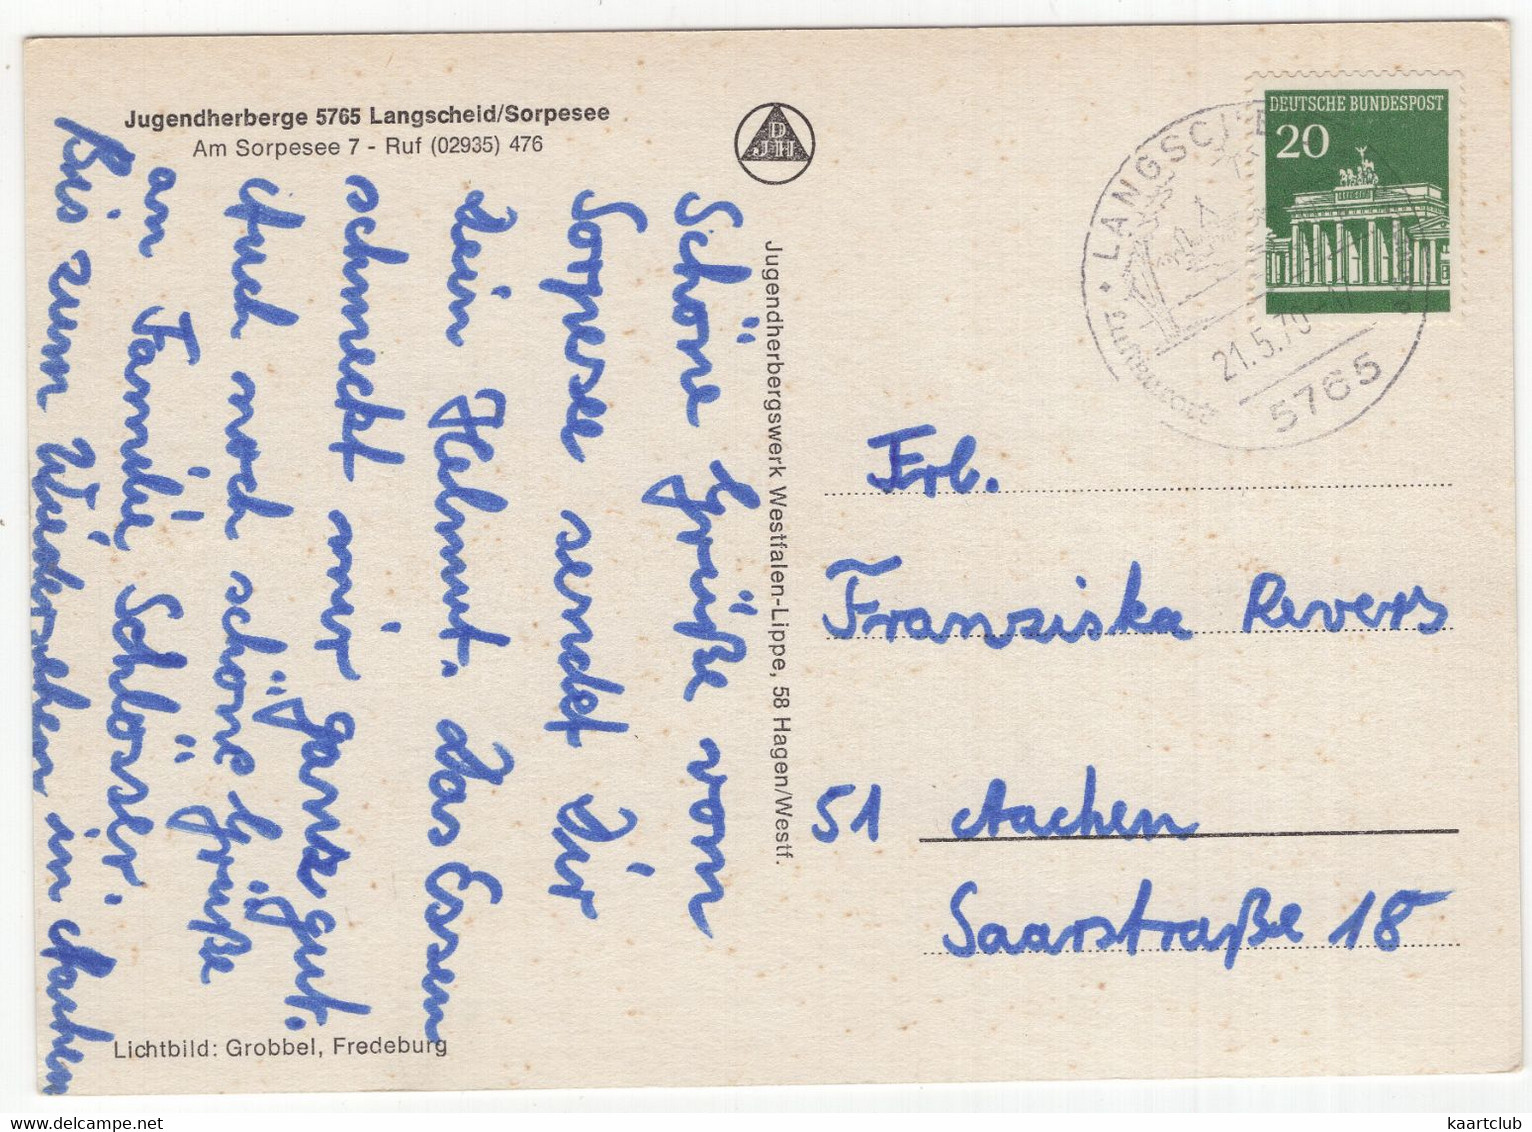 Jugendherberge 5765 Langscheid/Sorpesee
Am Sorpesee 7 - Ruf (02935) 476
DJH
Schöne Grüße vom
Sorpesee sendet Dir
Dein Helmut. Das Essen
schmeckt mir ganz gut.
Auch noch schöne Grüße
an Familie Schlösser.
Bis zum Wiedersehen in Aachen
Lichtbild: Grobbel, Fredeburg
Jugendherbergswerk Westfalen-Lippe, 58 Hagen/Westf.
DEUTSCHE BUNDESPOST
20
21.5.70
5765
Frl.
Franziska Revers
51 Aachen
Saarstraße 18
www.delcampe.net
kaartclub